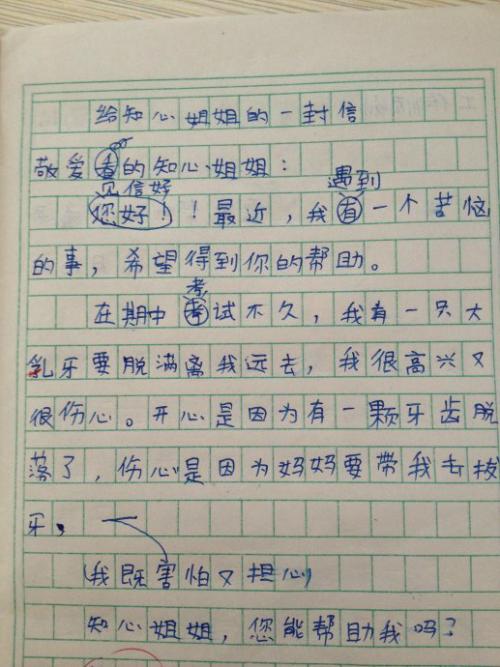 给知心姐姐的一封信
敬爱的知心姐姐：
见信好 遇到
您好！！最近，我有一个苦恼
的事，希望得到你的帮助。
考
在期中考试不久，我有一只大
乳牙要脱满离我远去，我很高兴又
很伤心。开心是因为有一颗牙齿脱
落了，伤心是因为妈妈要带我去拔
牙，
我既害怕又担心
知心姐姐，您能帮助我吗？